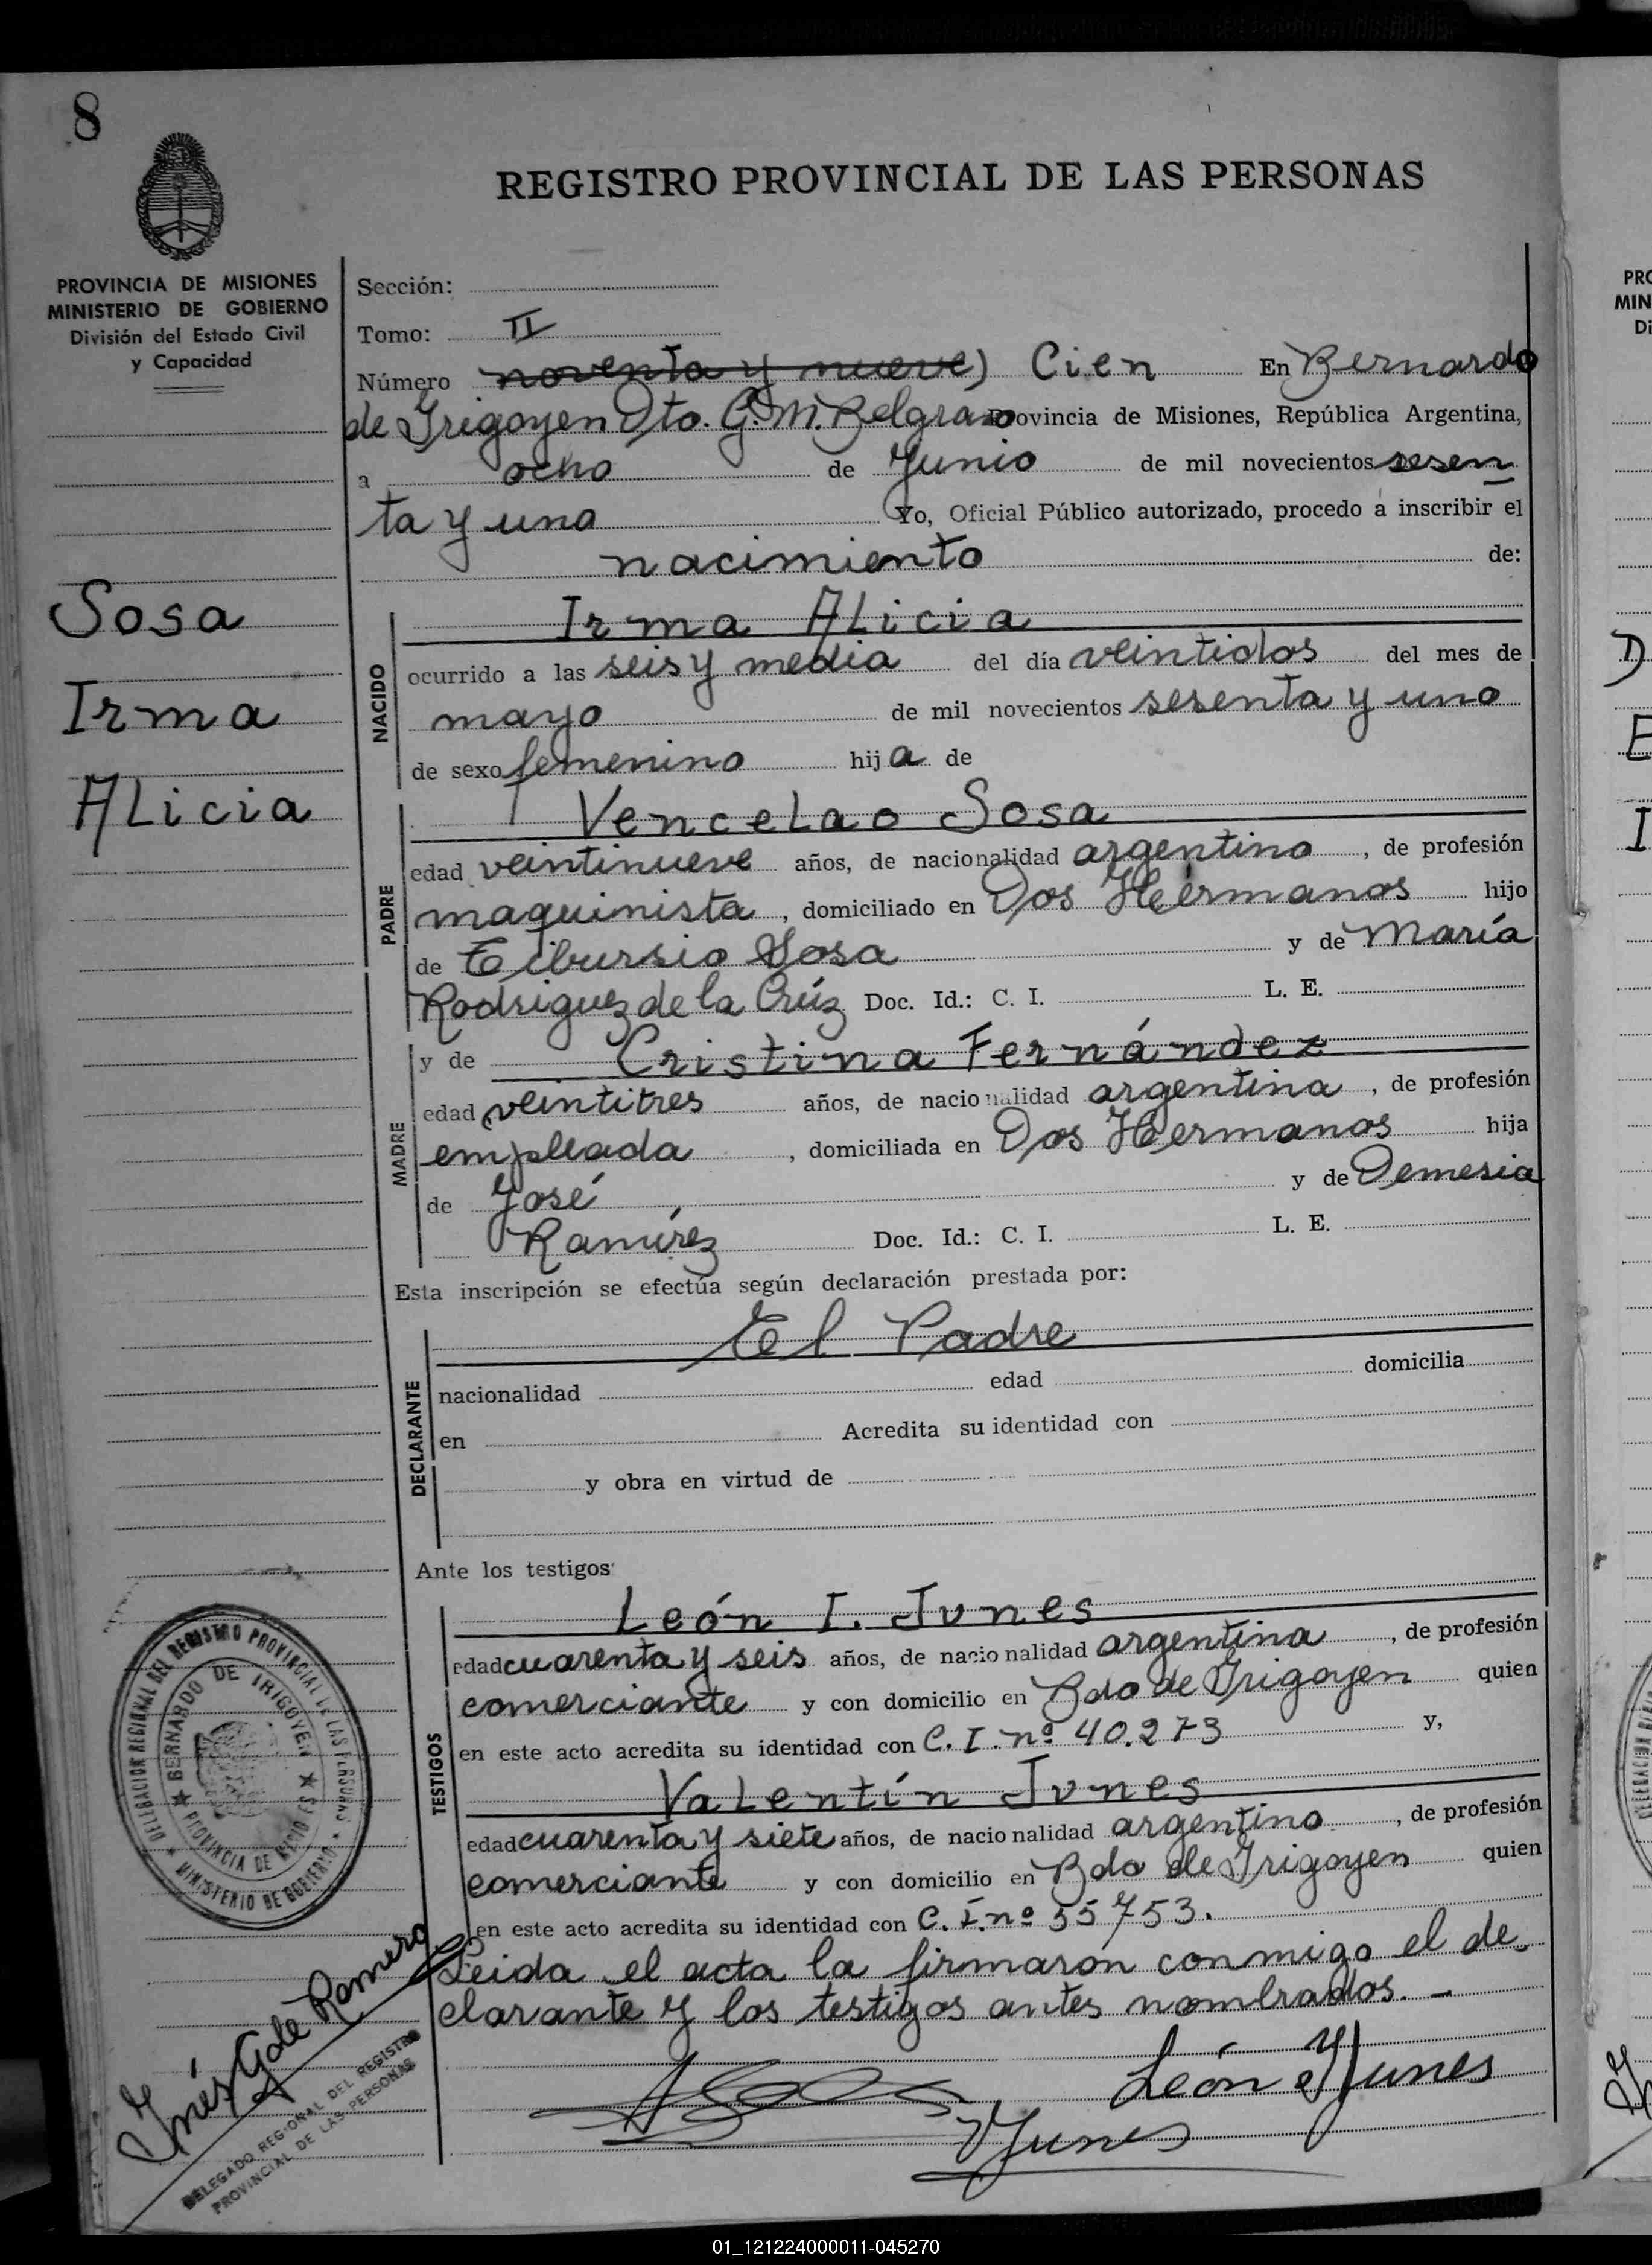 8
REGISTRO PROVINCIAL DE LAS PERSONAS
PROVINCIA DE MISIONES
MINISTERIO DE GOBIERNO
División del Estado Civil
y Capacidad
Sosa
Irma
ALicia
Sección:
Tomo: II
Número noventa y nueve) Cien En Bernardo
de Irigoyen Dto. G.M. Belgrano Provincia de Misiones, República Argentina,
a ocho de Junio de mil novecientos sesen
ta y uno Yo, Oficial Público autorizado, procedo a inscribir el
nacimiento de:
NACIDO
Irma ALicia
ocurrido a las seis y media del día veintidos del mes de
mayo de mil novecientos sesenta y uno
de sexo femenino hija de
PADRE
VenceLao Sosa
edad veintinueve años, de nacionalidad argentino, de profesión
maquinista, domiciliado en Dos Hermanos hijo
de Tibursio Sosa y de María
Rodriguez de la Crúz Doc. Id.: C. I. L. E.
MADRE
y de Cristina Fernández
edad veintitres años, de nacionalidad argentina, de profesión
empleada, domiciliada en Dos Hermanos hija
de José y de Demesia
Ramírez Doc. Id.: C. I. L. E.
Esta inscripción se efectúa según declaración prestada por:
DECLARANTE
El Padre
nacionalidad edad domicilia
en Acredita su identidad con
y obra en virtud de
Ante los testigos
TESTIGOS
León I. Junes
edad cuarenta y seis años, de nacionalidad argentina, de profesión
comerciante y con domicilio en Bdo de Irigoyen quien
en este acto acredita su identidad con C. I. nº 40.273 y,
VaLentín Junes
edad cuarenta y siete años, de nacionalidad argentino, de profesión
comerciante y con domicilio en Bdo de Irigoyen quien
en este acto acredita su identidad con C. I. nº 55753.
Leida el acta la firmaron conmigo el de
clarante y los testigos antes nombrados. -
León Junes
Junes
DELEGACION REGIONAL DEL REGISTRO PROVINCIAL DE LAS PERSONAS
MINISTERIO DE GOBIERNO
BERNARDO DE IRIGOYEN
PROVINCIA DE MISIONES
Inés Galé Romero
DELEGADO REGIONAL DEL REGISTRO
PROVINCIAL DE LAS PERSONAS
PRO
MIN
Di
D
E
I
01_121224000011-045270